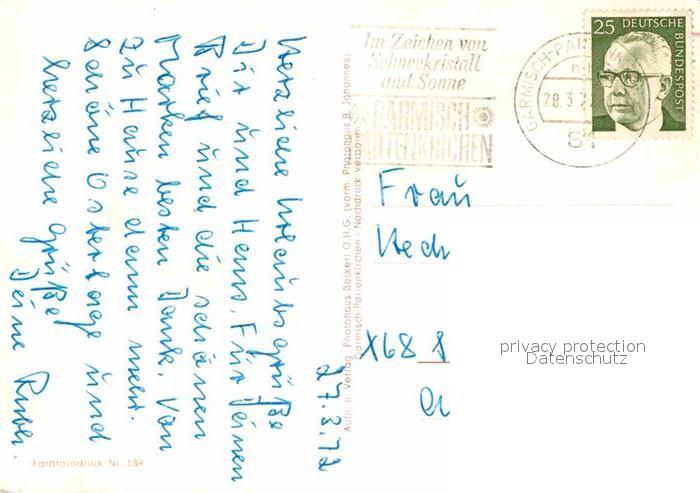 27.3.72
Herzliche Urlaubsgrüße
Dir und Hans. Für Deinen
Brief und die schönen
Marken besten Dank. Von
zu Hause dann mehr.
Schöne Ostertage und
herzliche Grüße
Deine
Farbfotodruck Nr. 189
Aufn. u. Verlag: Photohaus Beckert O.H.G. (vorm. Photohaus B. Johannes)
Garmisch-Partenkirchen - Nachdruck verboten
Im Zeichen von
Schneekristall
und Sonne
GARMISCH-
PARTENKIRCHEN
GARMISCH-PAR
28.3.7
81
25 DEUTSCHE
BUNDESPOST
Frau
X68
privacy protection
Datenschutz